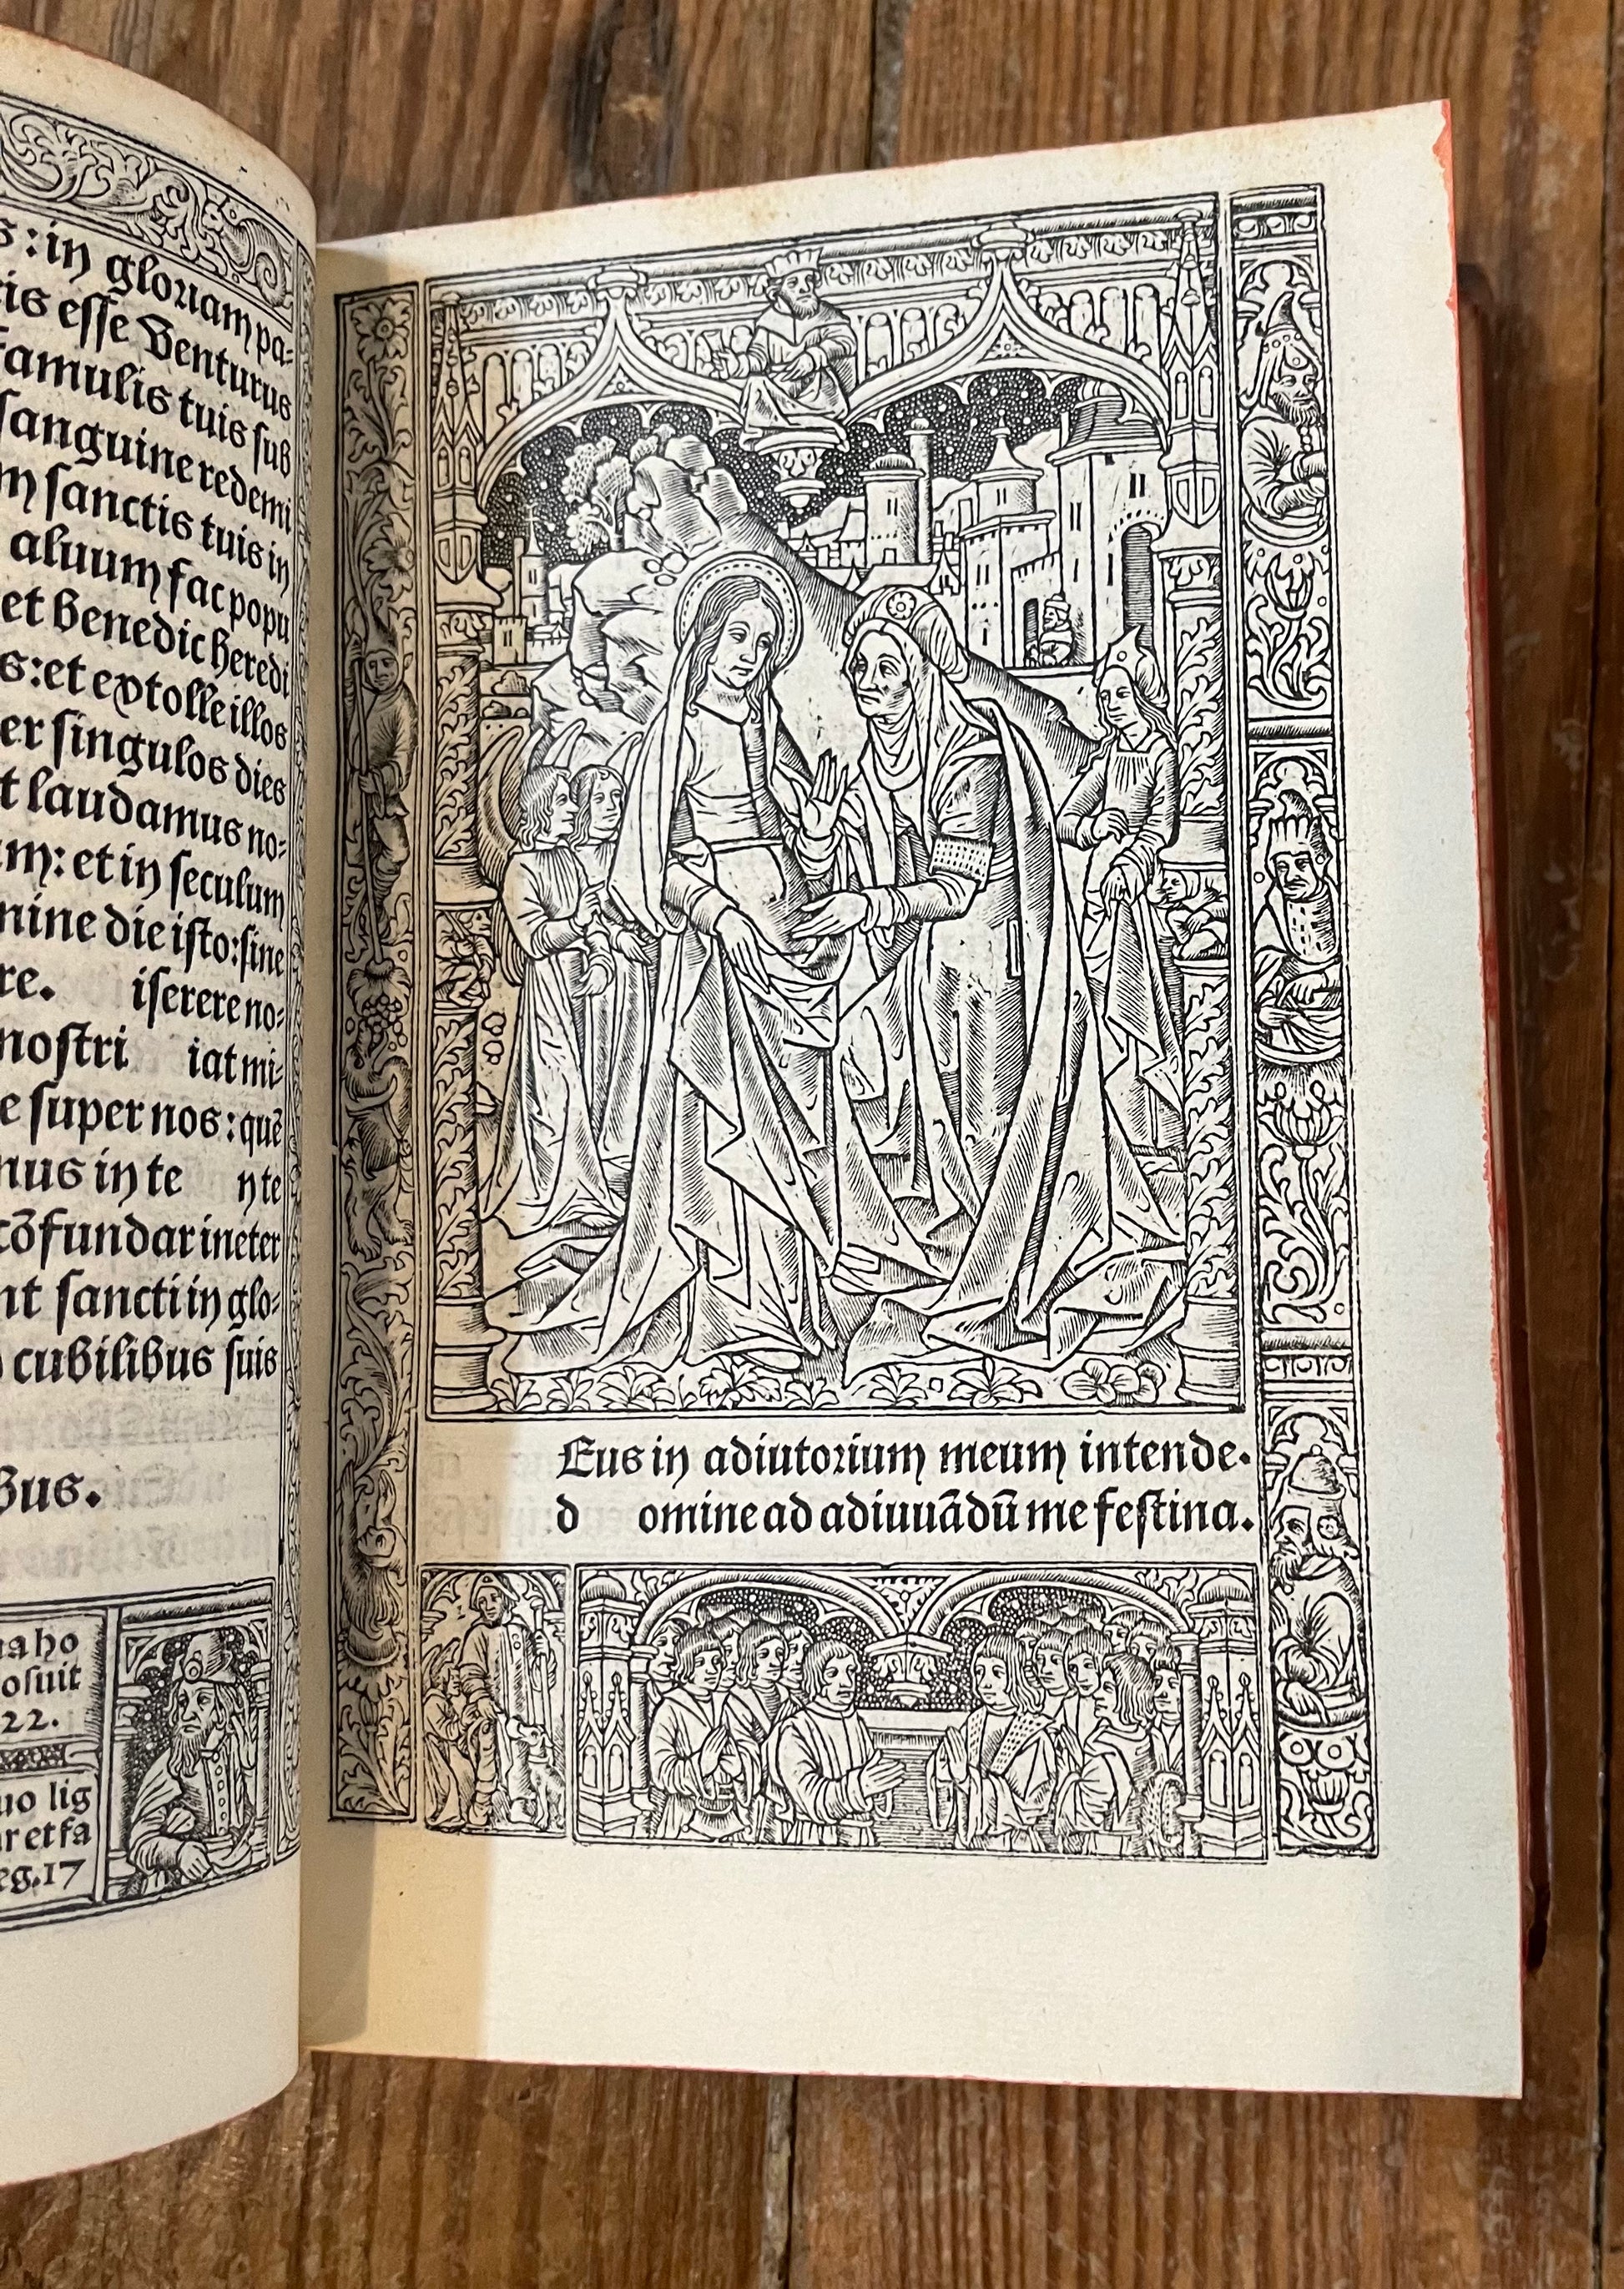 s : in gloriam pa=
tis esse Venturus
famulis tuis sub
sanguine redemi
m sanctis tuis in
aluum fac popu
et benedic heredi
s: et extolle illos
er singulos dies
t laudamus no=
um: et in seculum
mine die isto: sine
re. iserere no=
nostri iat mi=
e super nos: quē
mus in te n te
cōfundar in eter
nt sancti in glo=
cubilibus suis
bus.
na ho
osuit
22.
uo lig
ar et fa
eg. 17
Eus in adiutorium meum intende.
d omine ad adiuuādū me festina.